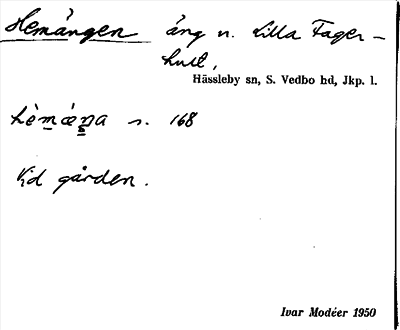 Hemängen äng n. Lilla Fager-
hult,
Hässleby sn, S. Vedbo hd, Jkp. l.
s. 168
Vid gården.
Ivar Modéer 1950